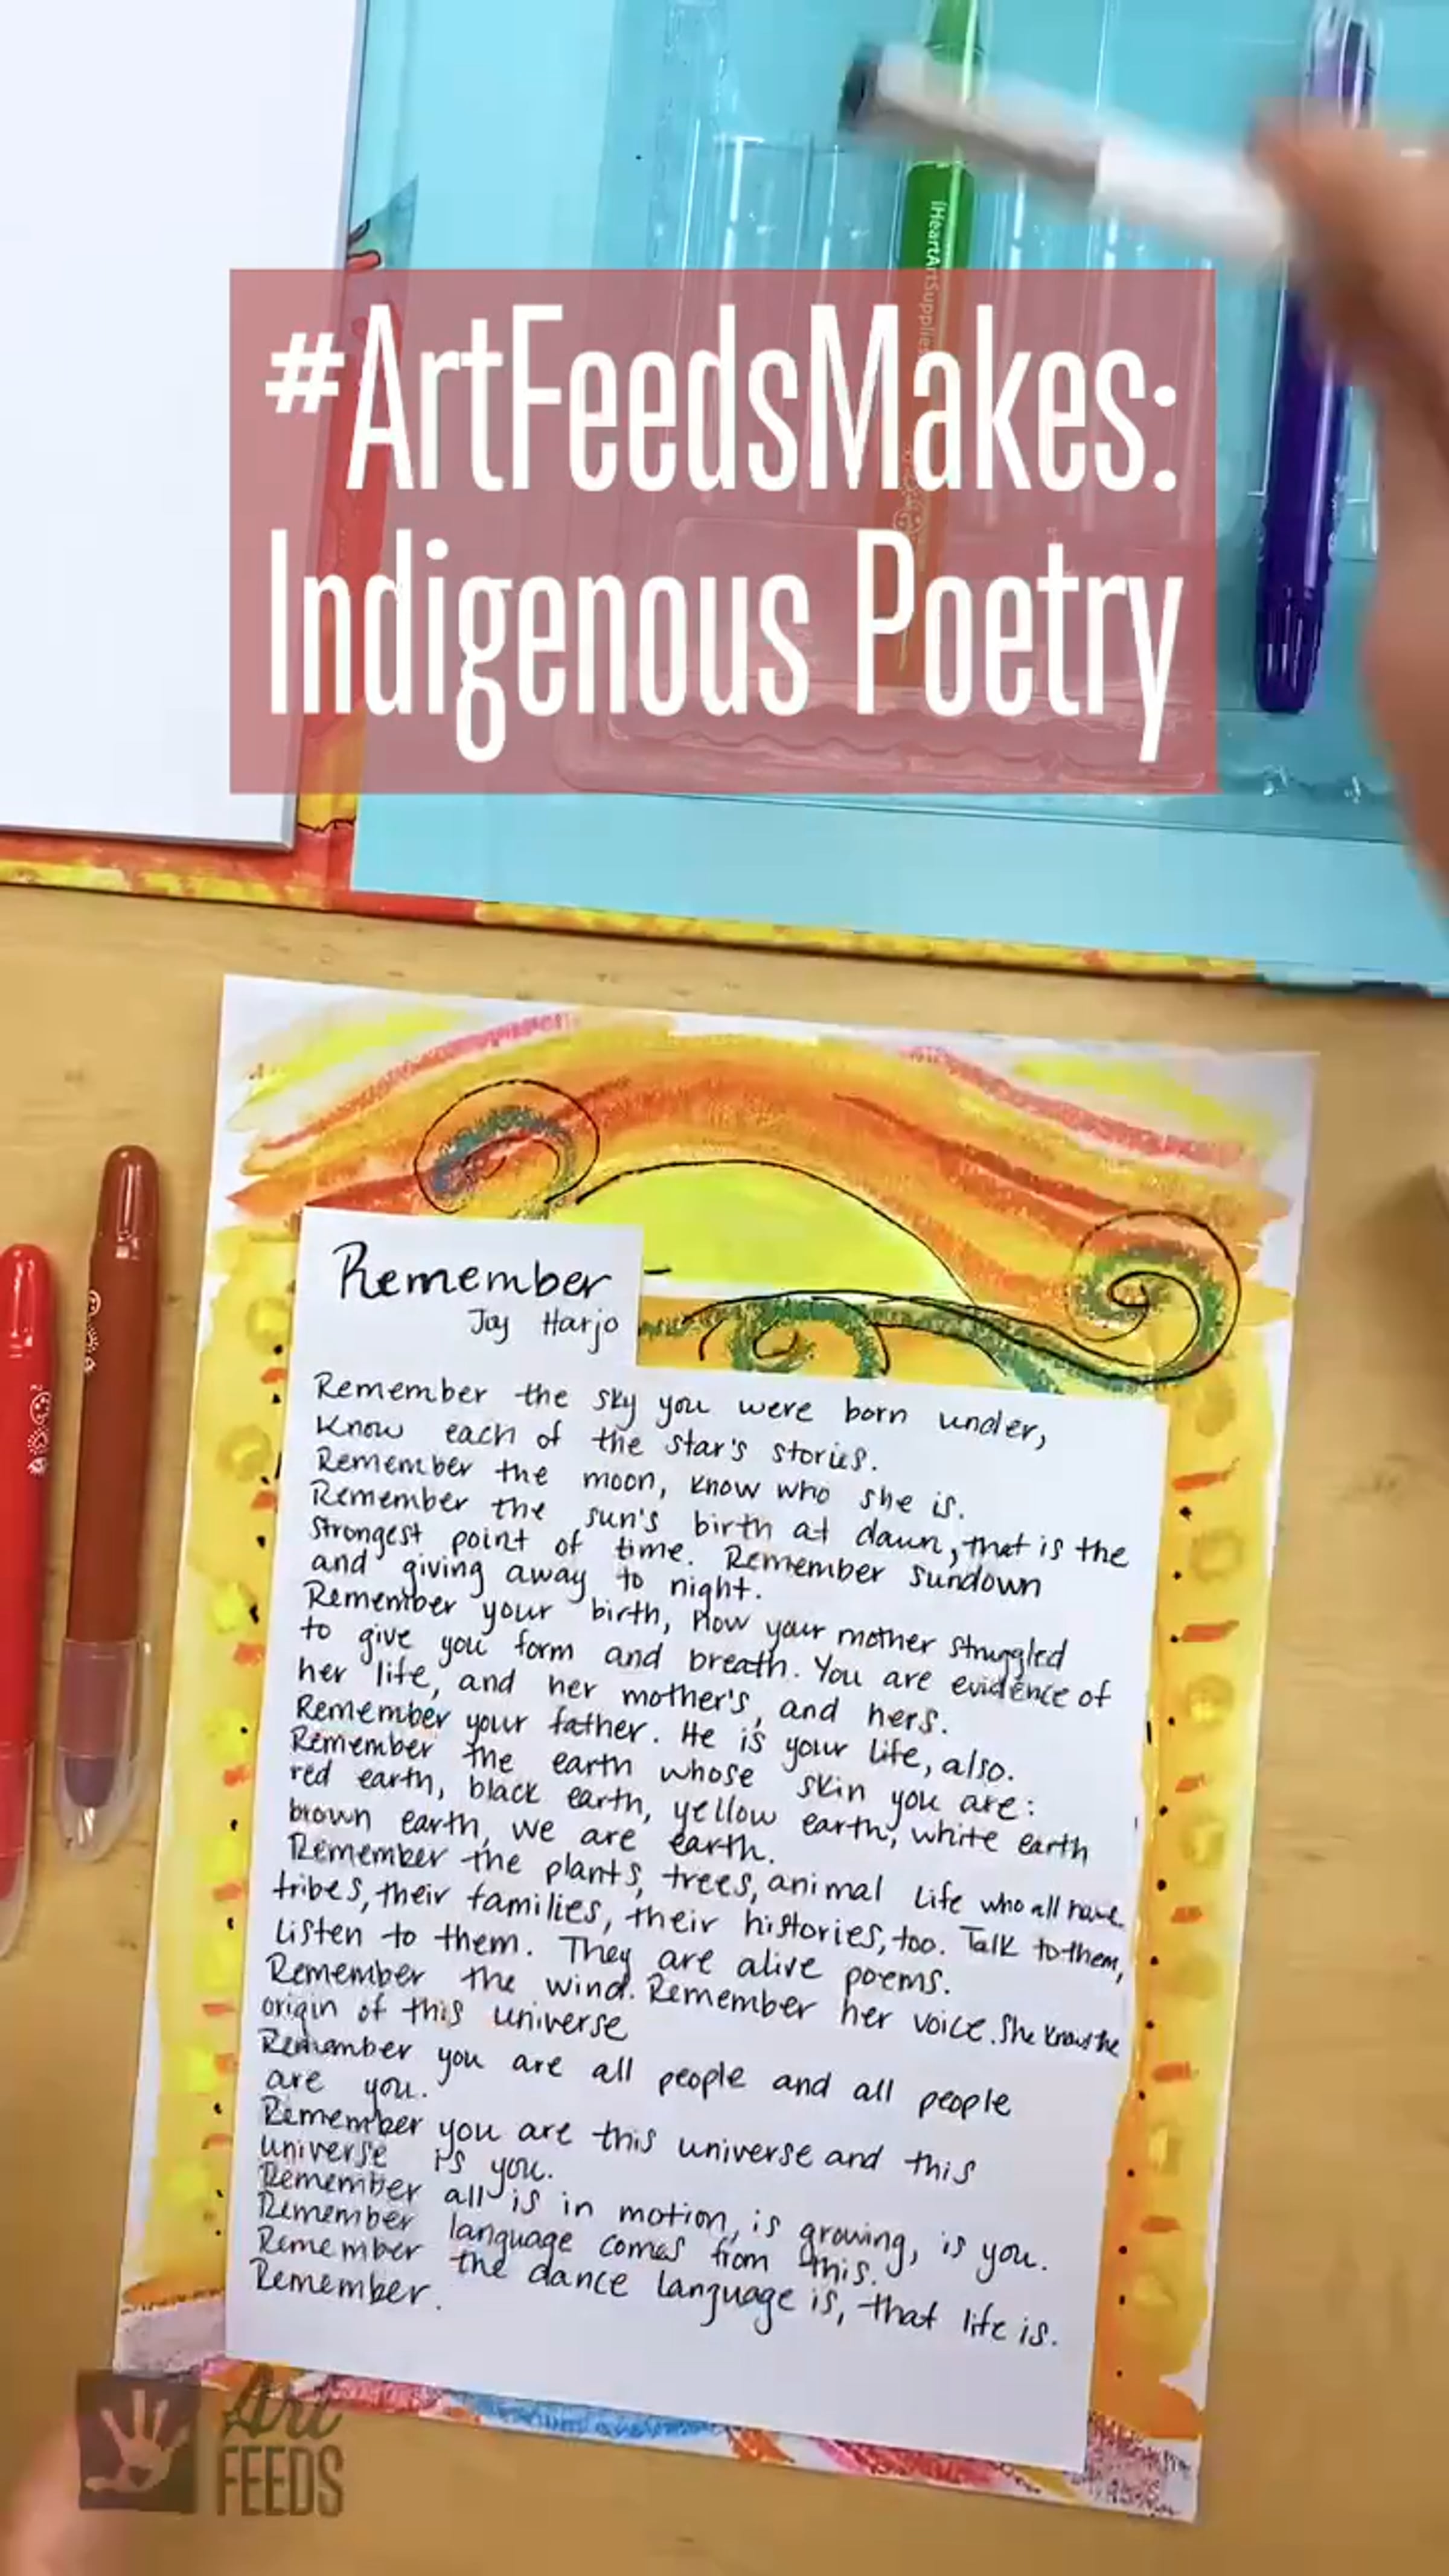 iHeartArtSupplies
#ArtFeedsMakes:
Indigenous Poetry
Remember
Joy Harjo
Remember the sky you were born under,
Know each of the star's stories.
Remember the moon, know who she is.
Remember the sun's birth at dawn, that is the
strongest point of time. Remember sundown
and giving away to night.
Remember your birth, how your mother struggled
to give you form and breath. You are evidence of
her life, and her mother's, and hers.
Remember your father. He is your life, also.
Remember the earth whose skin you are:
red earth, black earth, yellow earth, white earth
brown earth, we are earth.
Remember the plants, trees, animal life who all have
tribes, their families, their histories, too. Talk to them,
listen to them. They are alive poems.
Remember the wind. Remember her voice. She knows the
origin of this universe
Remember you are all people and all people
are you.
Remember you are this universe and this
universe is you.
Remember all is in motion, is growing, is you.
Remember language comes from this.
Remember the dance language is, that life is.
Remember.
Art
FEEDS